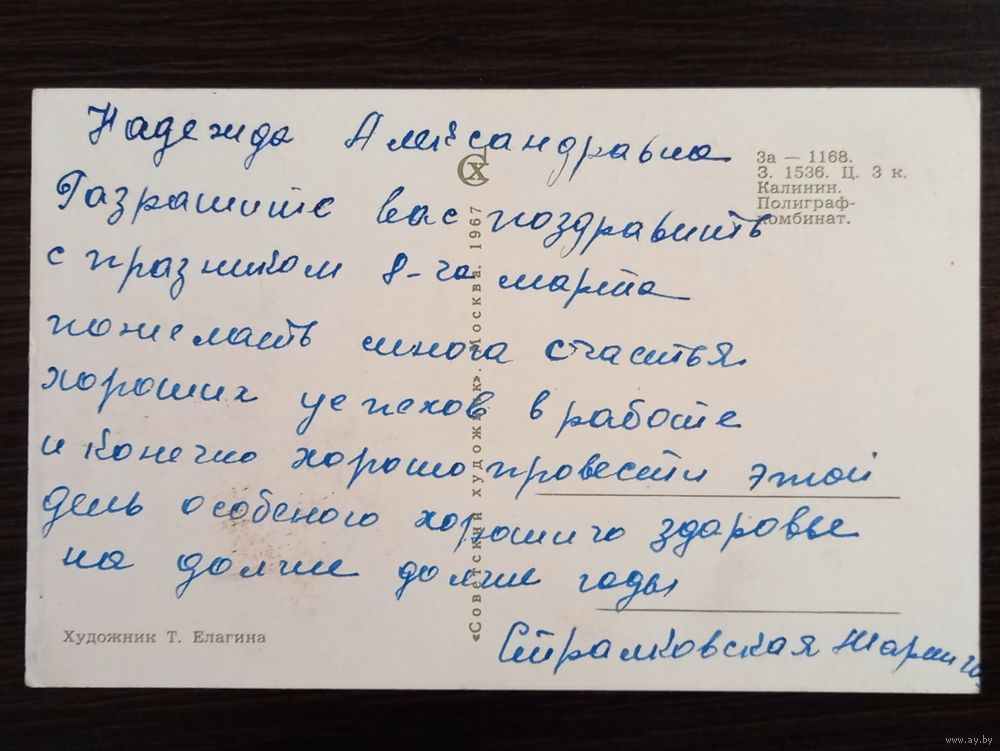 Надежда Александравна
Разрашите вас поздравить
с празником 8-га марта
пожелать многа счастья
хороших успехов в работе
и конечно хорошо провести этой
день особеного хорошиго здаровье
на долгие долгие годы
Стралковская
За — 1168.
З. 1536. Ц. 3 к.
Калинин.
Полиграф-
комбинат.
«Советский художник». Москва. 1967
Художник Т. Елагина
www.ay.by